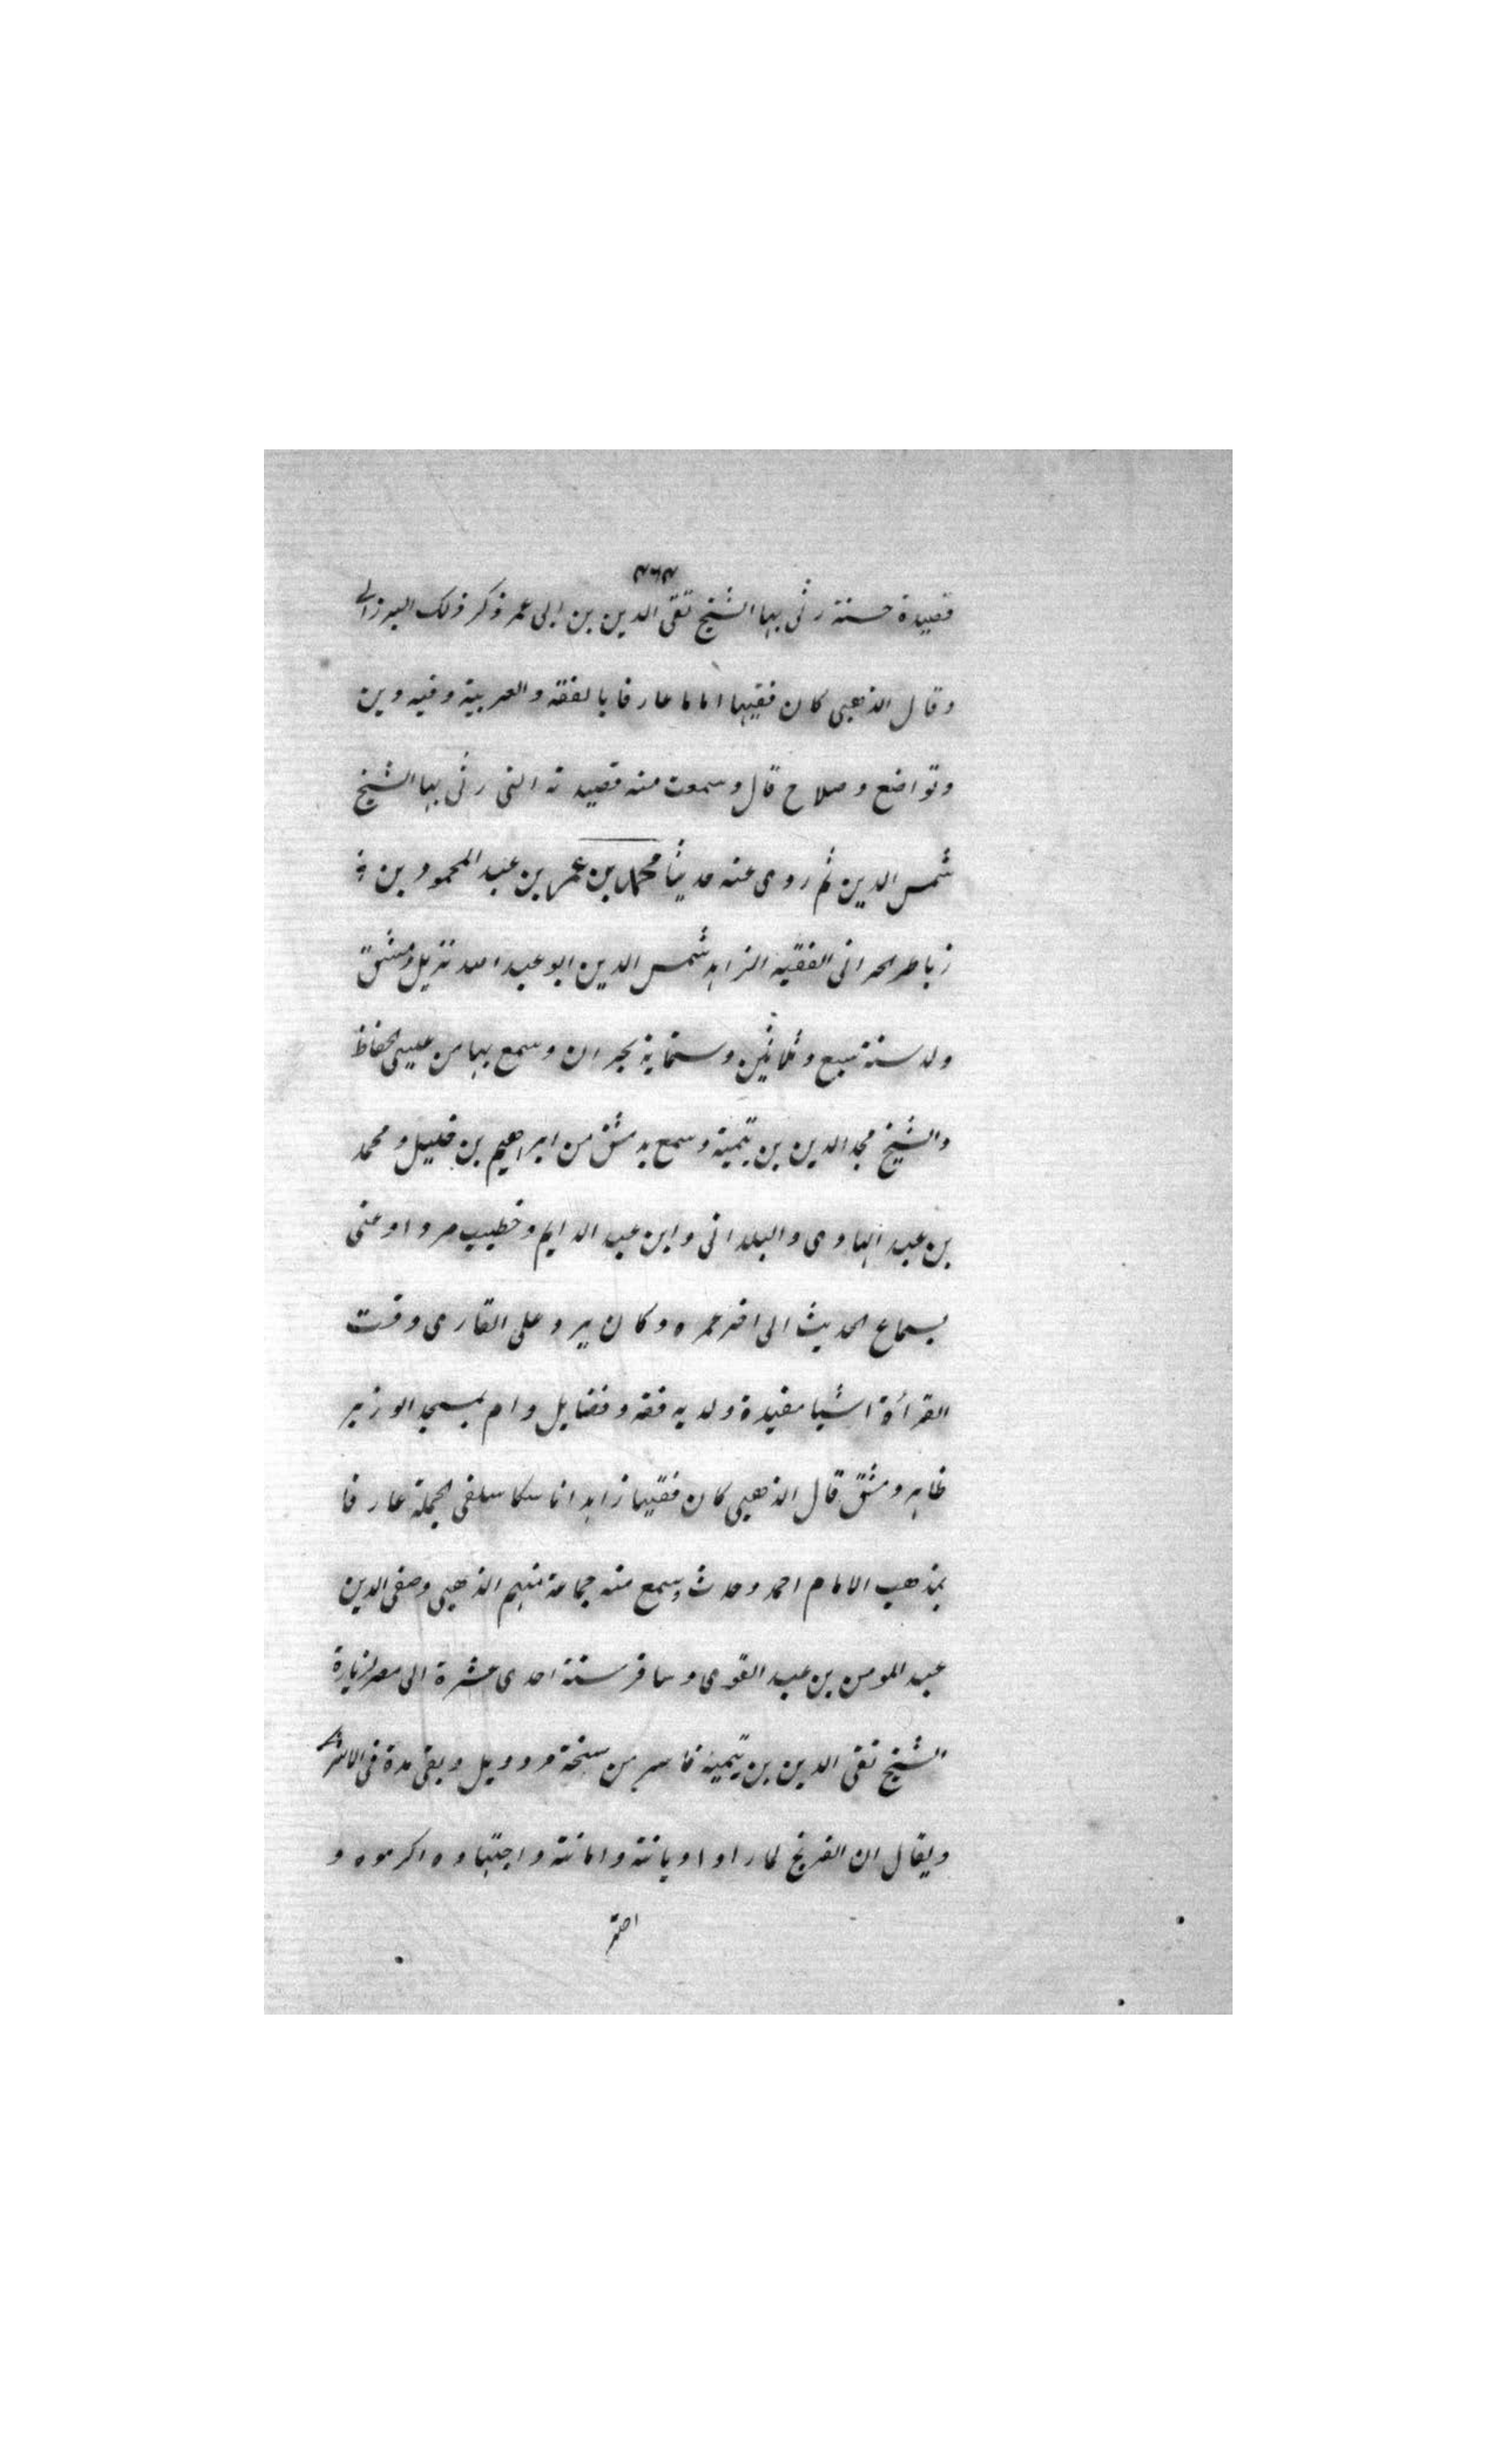 قصيدة حسنة رثى بها الشيخ تقى الدين بن ابى عمر وذكر ذلك البرزالى
وقال الذهبى كان فقيها اماما عارفا بالفقه والعربية وفيه دين
وتواضع وصلاح قال وسمعت منه قصيدته التى رثى بها الشيخ
شمس الدين ثم روى عنه حديثا محمد بن عمر بن عبد المحمود بن
زباطر الحرانى الفقيه الزاهد شمس الدين ابو عبد الله نزيل دمشق
ولد سنة سبع وثلاثين وستماية بحران وسمع بها من عيسى الحفاظ
والشيخ مجد الدين بن تيمية وسمع بدمشق من ابراهيم بن خليل ومحمد
بن عبد الهادى والبلدانى وابن عبد الدايم وخطيب مردا وعنى
بسماع الحديث الى اخر عمره وكان يرد على القارى وقت
القرأة اشيا مفيدة ولديه فقه وفضايل وام بمسجد الوزير
ظاهر دمشق قال الذهبى كان فقيها زاهدا ناسكا سلفى الجملة عارفا
بمذهب الامام احمد وحدث وسمع منه جماعة منهم الذهبى وصفى الدين
عبد المومن بن عبد القوى وسافر سنة احدى عشرة الى مصر لزيارة
الشيخ تقى الدين بن تيمية فاسر من سبخة بردويل وبقى مدة فى الاسر
ويقال ان الفرنج لما راوا ديانته وامانته واجتهاده اكرموه و